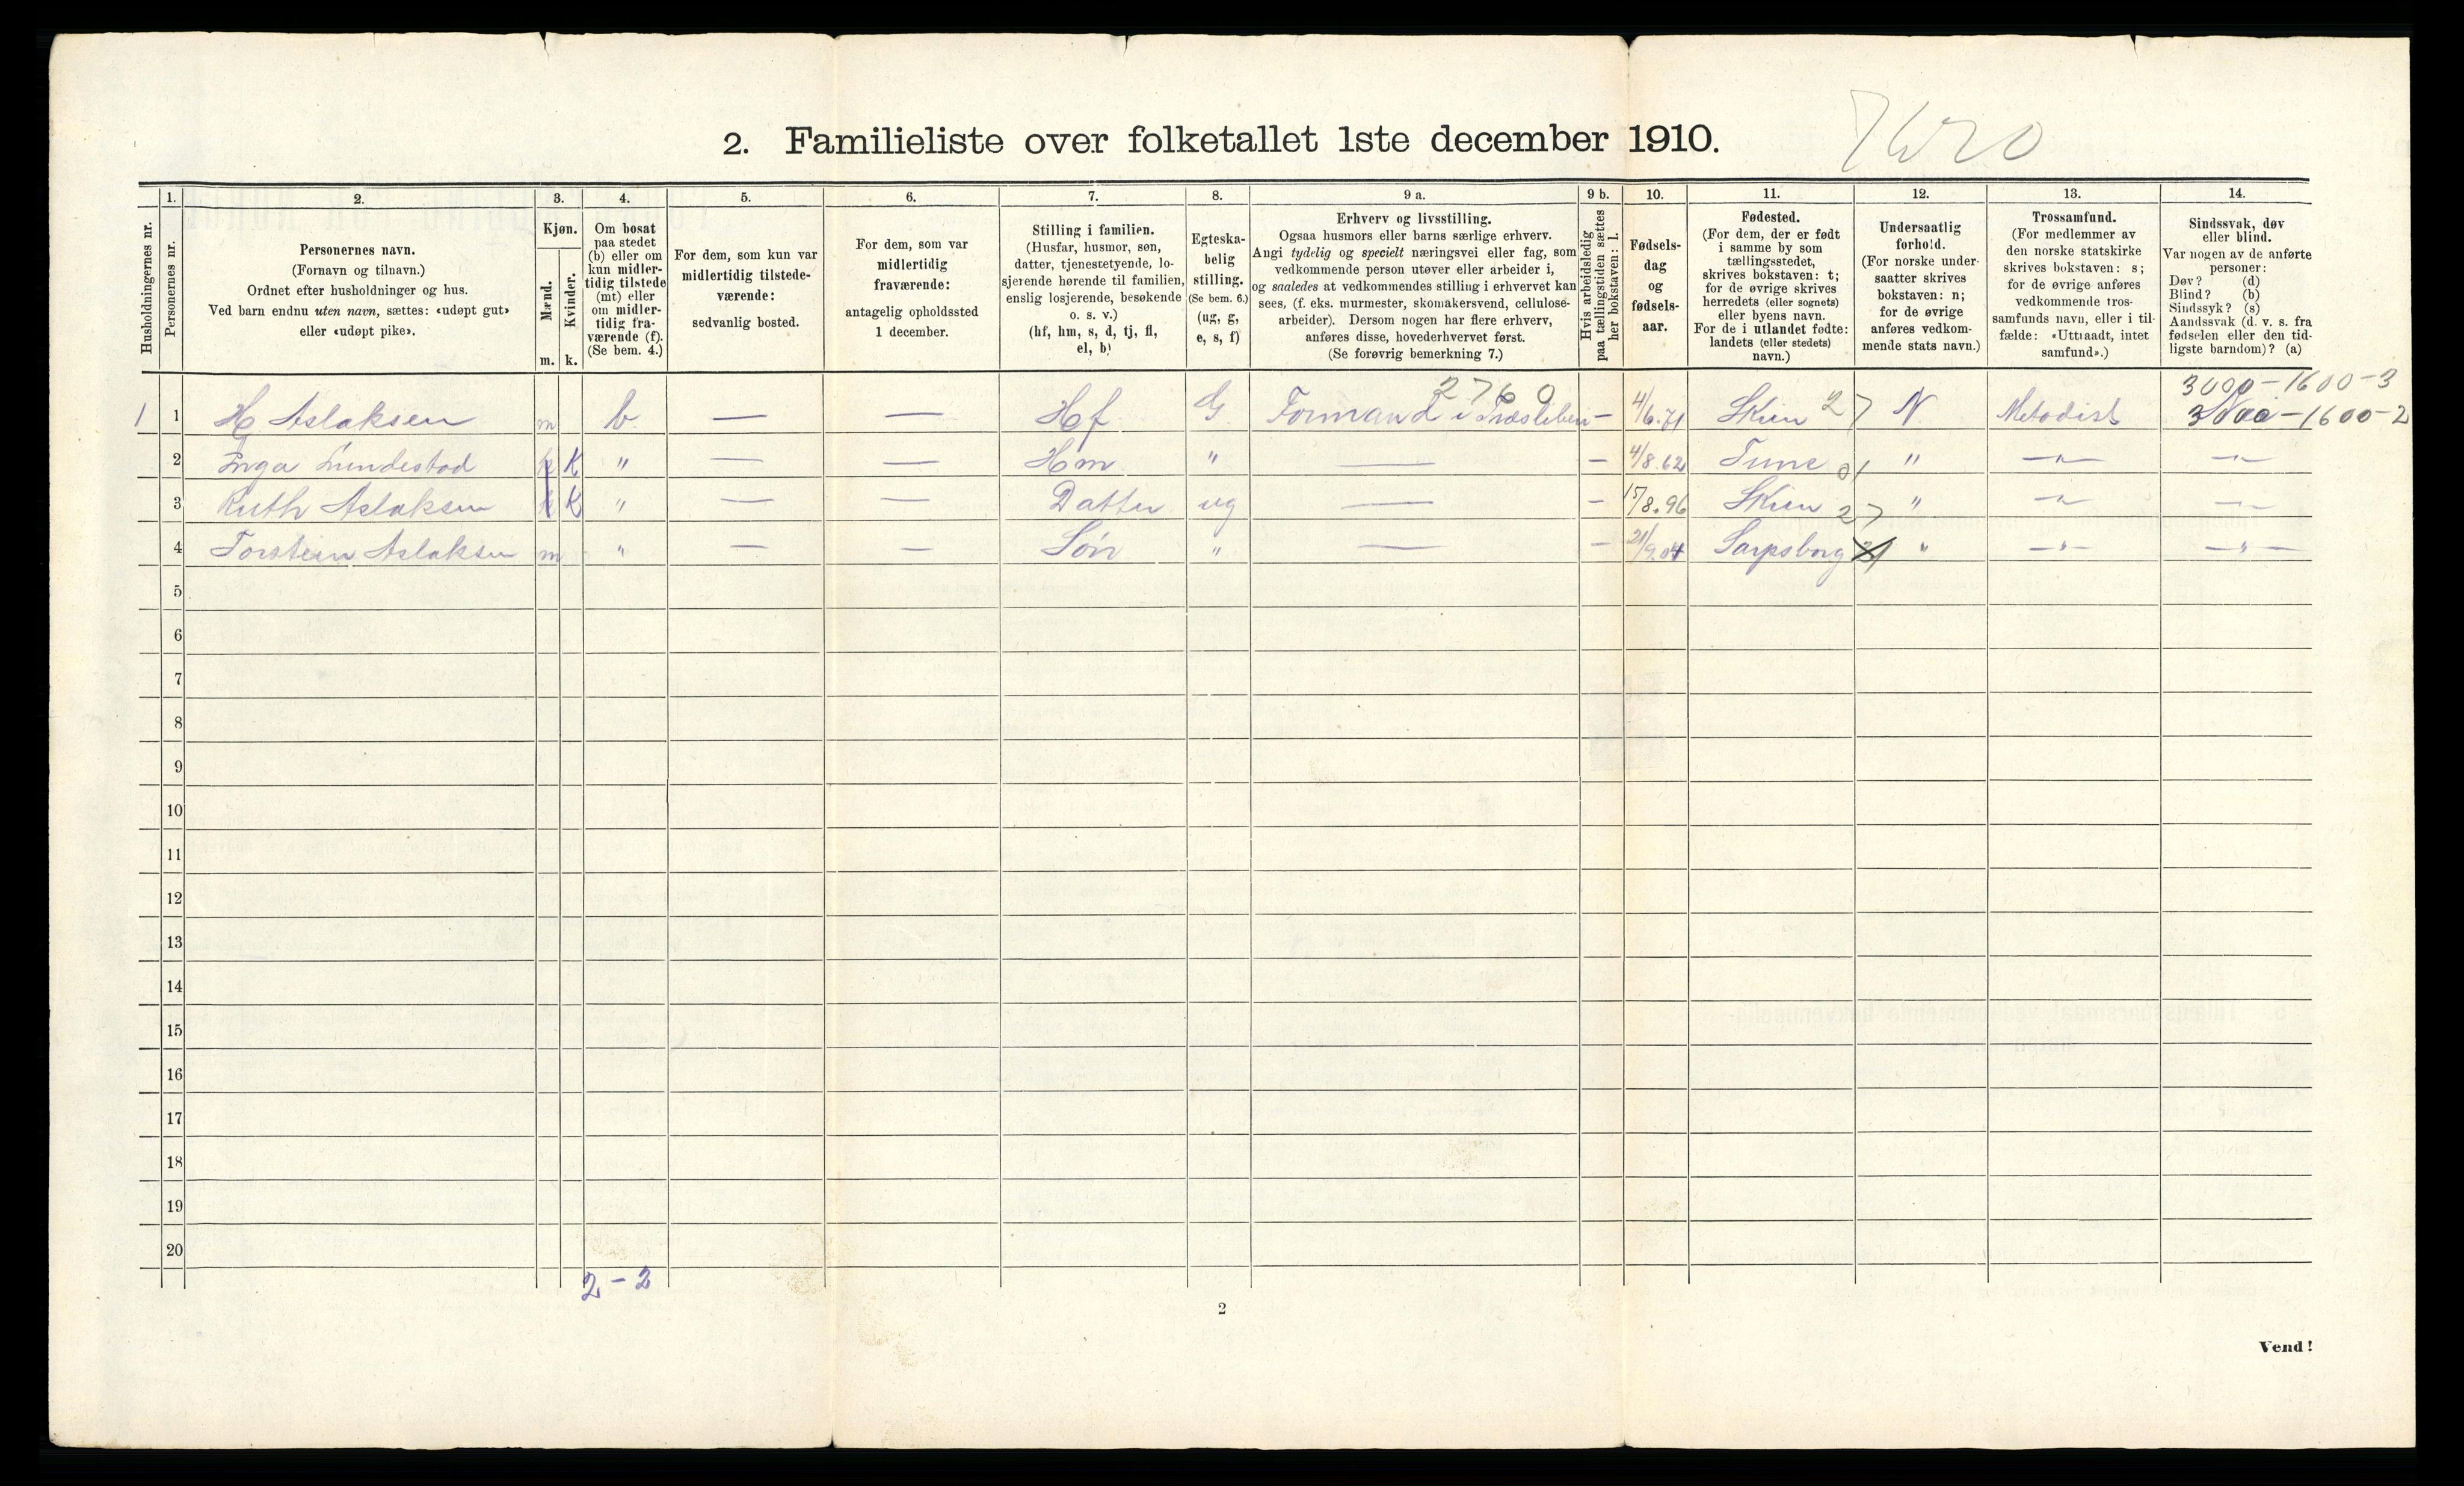 2. Familieliste over folketallet 1ste december 1910.
Husholdningernes nr.
1.
Personernes nr.
2.
Personernes navn.
(Fornavn og tilnavn.)
Ordnet efter husholdninger og hus.
Ved barn endnu uten navn, sættes: «udøpt gut»
eller «udøpt pike».
3.
Kjøn.
Mænd.
m.
Kvinder.
k.
4.
Om bosat
paa stedet
(b) eller om
kun midler-
tidig tilstede
(mt) eller
om midler-
tidig fra-
værende (f).
(Se bem. 4.)
5.
For dem, som kun var
midlertidig tilstede-
værende:
sedvanlig bosted.
6.
For dem, som var
midlertidig
fraværende:
antagelig opholdssted
1 december.
7.
Stilling i familien.
(Husfar, husmor, søn,
datter, tjenestetyende, lo-
sjerende hørende til familien,
enslig losjerende, besøkende
o. s. v.)
(hf, hm, s, d, tj, fl,
el, b)
8.
Egteska-
belig
stilling.
(Se bem. 6.)
(ug, g,
e, s, f)
9 a.
Erhverv og livsstilling.
Ogsaa husmors eller barns særlige erhverv.
Angi tydelig og specielt næringsvei eller fag, som
vedkommende person utøver eller arbeider i,
og saaledes at vedkommendes stilling i erhvervet kan
sees, (f. eks. murmester, skomakersvend, cellulose-
arbeider). Dersom nogen har flere erhverv,
anføres disse, hovederhvervet først.
(Se forøvrig bemerkning 7.)
9 b.
Hvis arbeidsledig
paa tællingstiden sættes
her bokstaven: l.
10.
Fødsels-
dag
og
fødsels-
aar.
11.
Fødested.
(For dem, der er født
i samme by som
tællingsstedet,
skrives bokstaven: t;
for de øvrige skrives
herredets (eller sognets)
eller byens navn.
For de i utlandet fødte:
landets (eller stedets)
navn.)
12.
Undersaatlig
forhold.
(For norske under-
saatter skrives
bokstaven: n;
for de øvrige
anføres vedkom-
mende stats navn.)
13.
Trossamfund.
(For medlemmer av
den norske statskirke
skrives bokstaven: s;
for de øvrige anføres
vedkommende tros-
samfunds navn, eller i til-
fælde: «Uttraadt, intet
samfund».)
14.
Sindssvak, døv
eller blind.
Var nogen av de anførte
personer:
Døv? (d)
Blind? (b)
Sindssyk? (s)
Aandssvak (d. v. s. fra
fødselen eller den tid-
ligste barndom)? (a)
2760 3000-1600-3
1 1 H Aslaksen m b — — Hf G Formand i — 4/6.71 Skien 27 N Metodist -1600-2
2 Inga Lundestad K " — — Hm " — — 4/8.62 Tune 01 " —"— —"—
3 Ruth Aslaksen K " — — Datter ug — — 15/8.96 Skien 27 " —"— —"—
4 Torstein Aslaksen m " — — Søn " — — 21/9.04 Sarpsborg " —"— —"—
5
6
7
8
9
10
11
12
13
14
15
16
17
18
19
20
2-2
2
Vend!